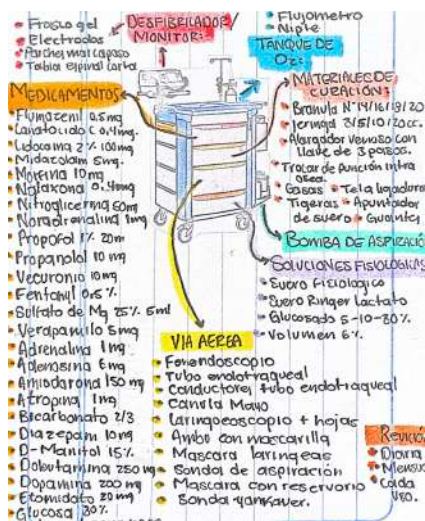 Frasco gel
Electrodos
Parches marcapaso
Tabla espinal corta
DESFIBRILADOR/
MONITOR:
Flujometro
Niple
TANQUE DE
O2:
MEDICAMENTOS
Flumazenil 0.5mg
Lanatocido C 0.4mg.
Lidocaina 2% 100mg
Midazolam 5mg.
Morfina 10mg
Naloxona 0.4mg
Nitroglicerina 50mg
Noradrenalina 1mg
Propofol 1% 20m
Propanolol 10 mg
Vecuronio 10mg
Fentanil 0.5%
Sulfato de Mg 25% 5ml
Verapamilo 5mg
Adrenalina 1mg
Adenosina 6mg
Amiodarona 150 mg
Atropina 1mg
Bicarbonato 2/3
Diazepam 10mg
D-Manitol 15%
Dobutamina 250 mg
Dopamina 200 mg
Etomidato 20mg
Glucosa 30%
MATERIALES DE
CURACIÓN:
Branula N°14/16/18/20
Jeringa 3/5/10/20cc.
Alargador venoso con
llave de 3 pasos.
Trocar de punción intra
osea.
Gasas Tela
Tigeras
de suero
BOMBA DE ASPIRACIÓ
SOLUCIONES FISIOLOGICAS
Suero Fisiologico
Suero Ringer Lactato
Glucosado 5-10-30%
Volumen 6%
VIA AEREA
Fonendoscopio
Tubo endotraqueal
Conductores tubo endotraqueal
Canula Mayo
Laringoscopio + hojas
Ambo con mascarilla
Mascara laringeas
Sonda de aspiración
Mascara con reservorio
Sonda yankauer.
Revisión
Diaria
Mensua
Cada
uso.